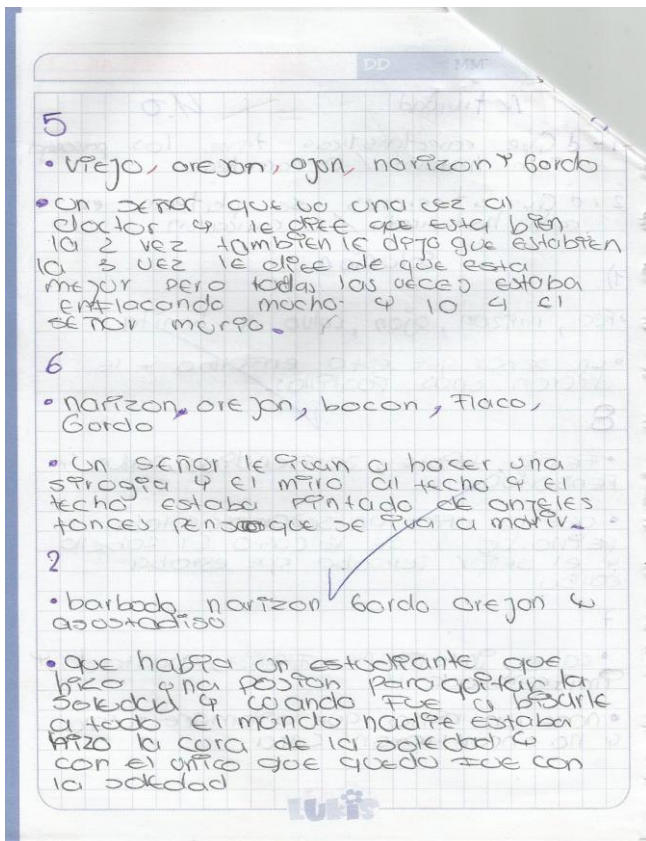 DD MM
5
• Viejo, orejon, ojon, narizon y Gordo
• un señor que va una vez al
doctor y le dice que esta bien
la 2 vez tambien le dijo que estabien
la 3 vez le dice de que esta
mejor pero todas las veces estaba
enflacando mucho y lo 4 el
señor murio.
6
• narizon, orejon, bocon, Flaco,
Gordo
• un señor le ivan a hacer una
sirogia y el miro al techo y el
techo estaba pintado de angeles
tonces penso que se iva a morir.
2
• barbado narizon Gordo orejon y
asostadiso
• que habia un estudiante que
hizo una posion para quitar la
soledad y cuando fue a bisarle
a todo el mundo nadie estaba
hizo la cora de la soledad y
con el unico que quedo fue con
la soledad
LUKIS